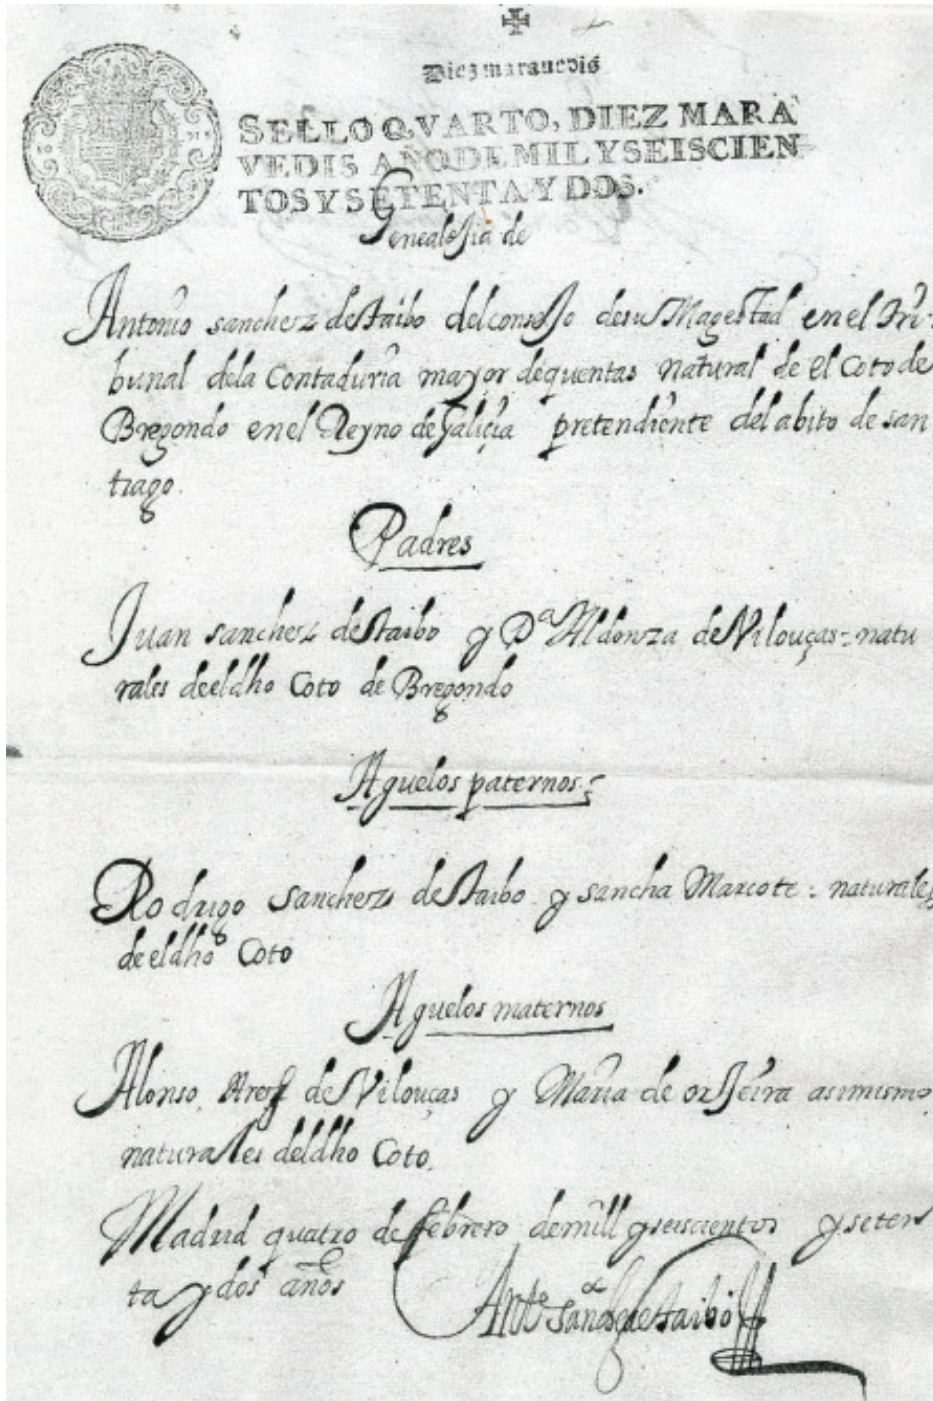 Diez marauedis
SELLO QVARTO, DIEZ MARA
VEDIS AÑO DE MIL Y SEISCIEN
TOS Y SETENTA Y DOS.
Genealojia de
Antonio sanchez de taibo del consejo de su Magestad en el Tri-
bunal de la Contaduria mayor de quentas natural de el Coto de
Bregondo en el Reyno de Galiçia pretendiente del abito de san
tiago.
Padres
Juan sanchez de taibo y Dª Aldonza de Vilouças = natu
rales de el dho Coto de Bregondo
Aguelos paternos =
Rodrigo sanchez de taibo y sancha Marcote = naturales
de el dho Coto
Aguelos maternos
Alonso de Vilouças y Maria de orJeira asimismo
naturales del dho Coto.
Madrid quatro de febrero de mill y seiscientos y seten
ta y dos años
Antº sanchez de taibo